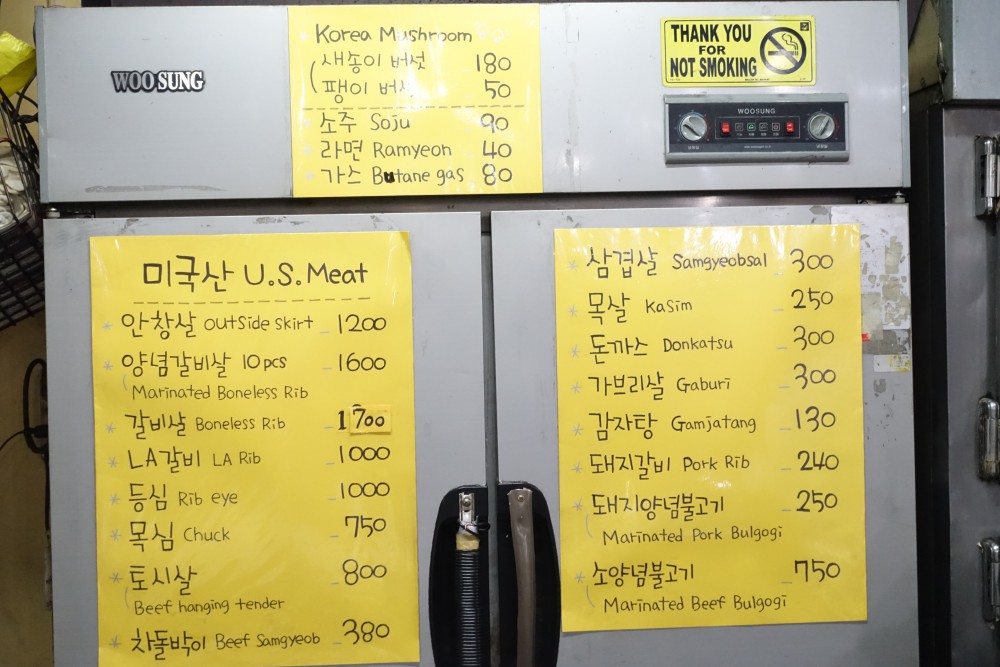 WOOSUNG
Korea Mushroom
새송이 버섯 180
팽이 버섯 50
소주 Soju 90
라면 Ramyeon 40
가스 Butane gas 80
THANK YOU
FOR
NOT SMOKING
WOOSUNG
미국산 U.S. Meat
* 안창살 outside skirt _ 1200
* 양념갈비살 10pcs _ 1600
Marinated Boneless Rib
* 갈비살 Boneless Rib _ 1700
* LA갈비 LA Rib _ 1000
* 등심 Rib eye _ 1000
* 목심 Chuck _ 750
* 토시살 _ 800
Beef hanging tender
* 차돌박이 Beef Samgyeob _ 380
* 삼겹살 Samgyeobsal _ 300
* 목살 Kasim _ 250
* 돈까스 Donkatsu _ 300
* 가브리살 Gaburi _ 300
* 감자탕 Gamjatang _ 130
* 돼지갈비 Pork Rib _ 240
* 돼지양념불고기 _ 250
Marinated Pork Bulgogi
* 소양념불고기 _ 750
Marinated Beef Bulgogi